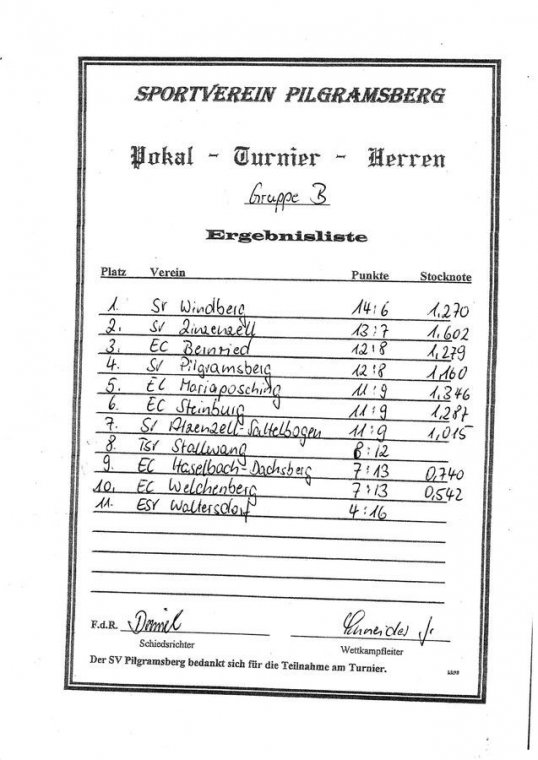 SPORTVEREIN PILGRAMSBERG
Pokal - Turnier - Herren
Gruppe B
Ergebnisliste
Platz Verein Punkte Stocknote
1. SV Windberg 14:6 1,270
2. SV Zinzenzell 13:7 1,602
3. EC Bernried 12:8 1,279
4. SV Pilgramsberg 12:8 1,160
5. EC Mariaposching 11:9 1,346
6. EC Steinburg 11:9 1,287
7. SV Atzenzell-Sattelbogen 11:9 1,015
8. TSV Stallwang 8:12
9. EC Haselbach-Dachsberg 7:13 0,740
10. EC Welchenberg 7:13 0,542
11. ESV Waltersdorf 4:16
F.d.R.
Schneider jr.
Schiedsrichter Wettkampfleiter
Der SV Pilgramsberg bedankt sich für die Teilnahme am Turnier.